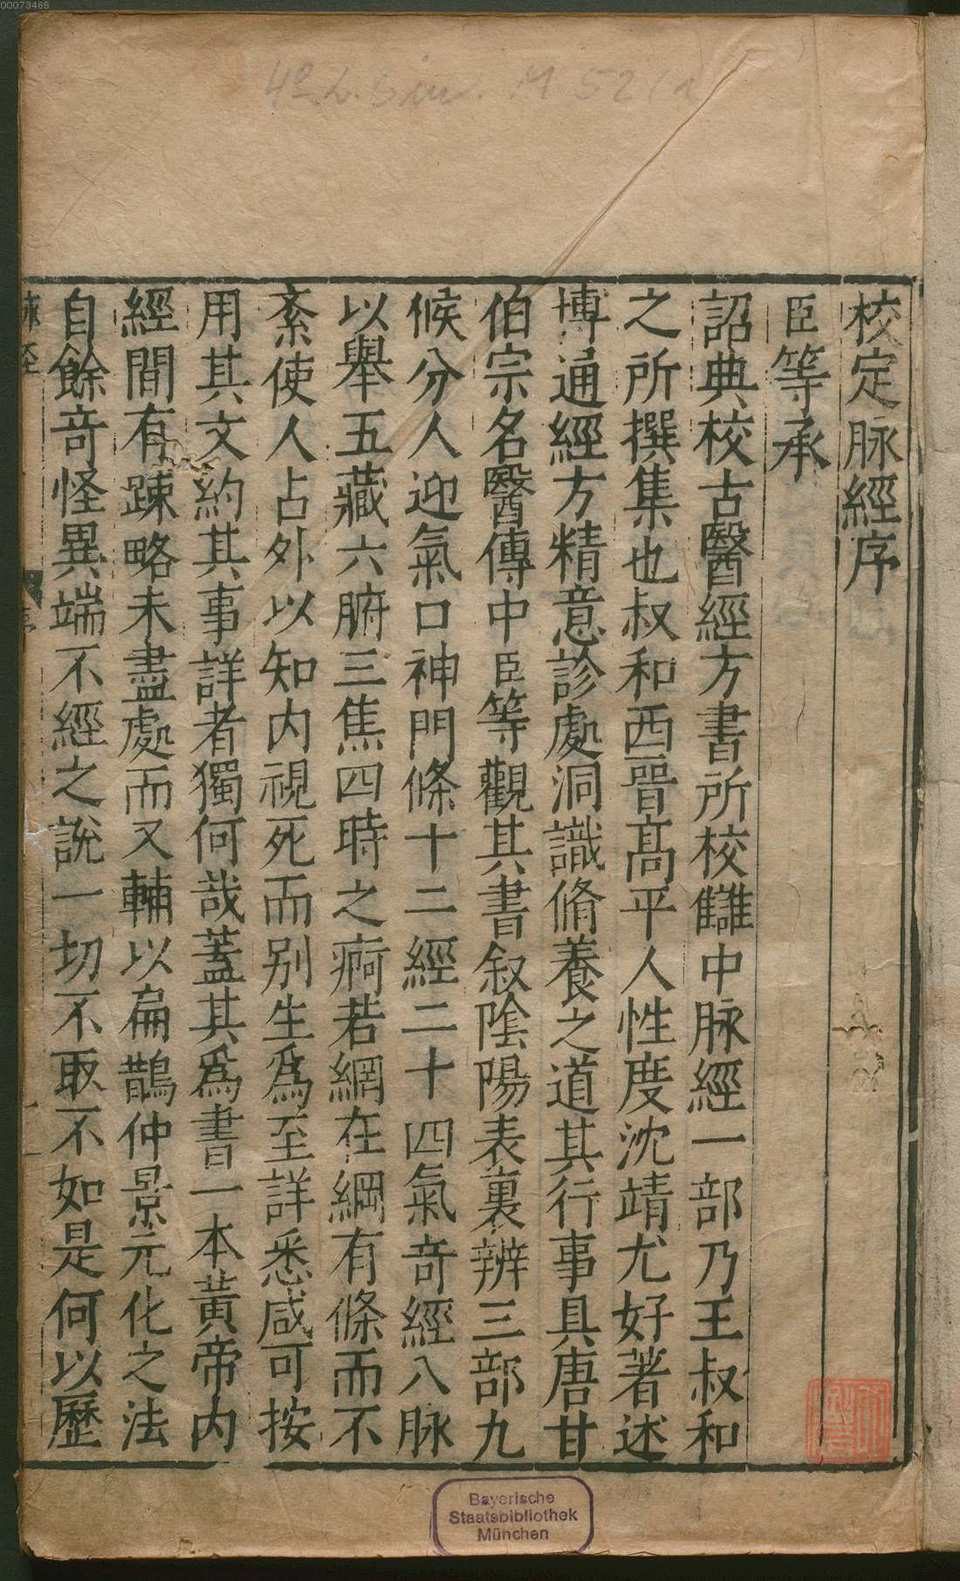 00073465
校定脉經序
臣等承
詔典校古醫經方書所校讎中脉經一部乃王叔和
之所撰集也叔和西晉髙平人性度沈靖尤好著述
博通經方精意診處洞識脩養之道其行事具唐甘
伯宗名醫傳中臣等觀其書叙隂陽表裏辨三部九
候分人迎氣口神門條十二經二十四氣竒經八脉
以舉五藏六腑三焦四時之痾若網在綱有條而不
紊使人占外以知内視死而别生爲至詳悉咸可按
用其文約其事詳者獨何哉蓋其爲書一本黃帝内
經間有踈略未盡處而又輔以扁鵲仲景元化之法
自餘竒怪異端不經之說一切不取不如是何以歷
Bayerische
Staatsbibliothek
München